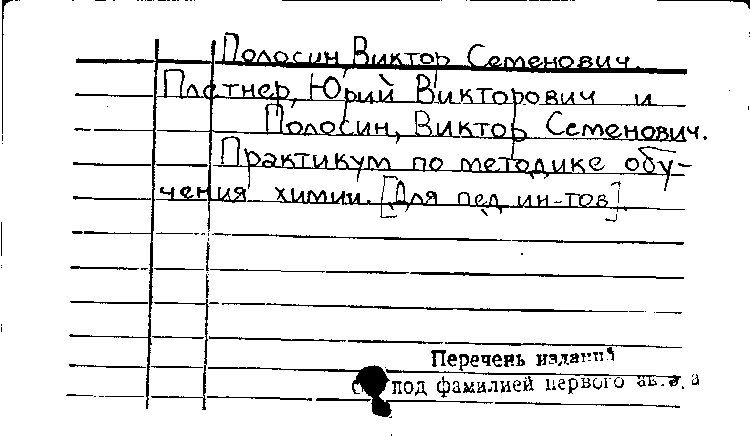 Полосин, Виктор Семенович.
Плетнер, Юрий Викторович и
Полосин, Виктор Семенович.
Практикум по методике обу-
чения химии. [Для пед. ин-тов].
Перечень изданий
под фамилией первого